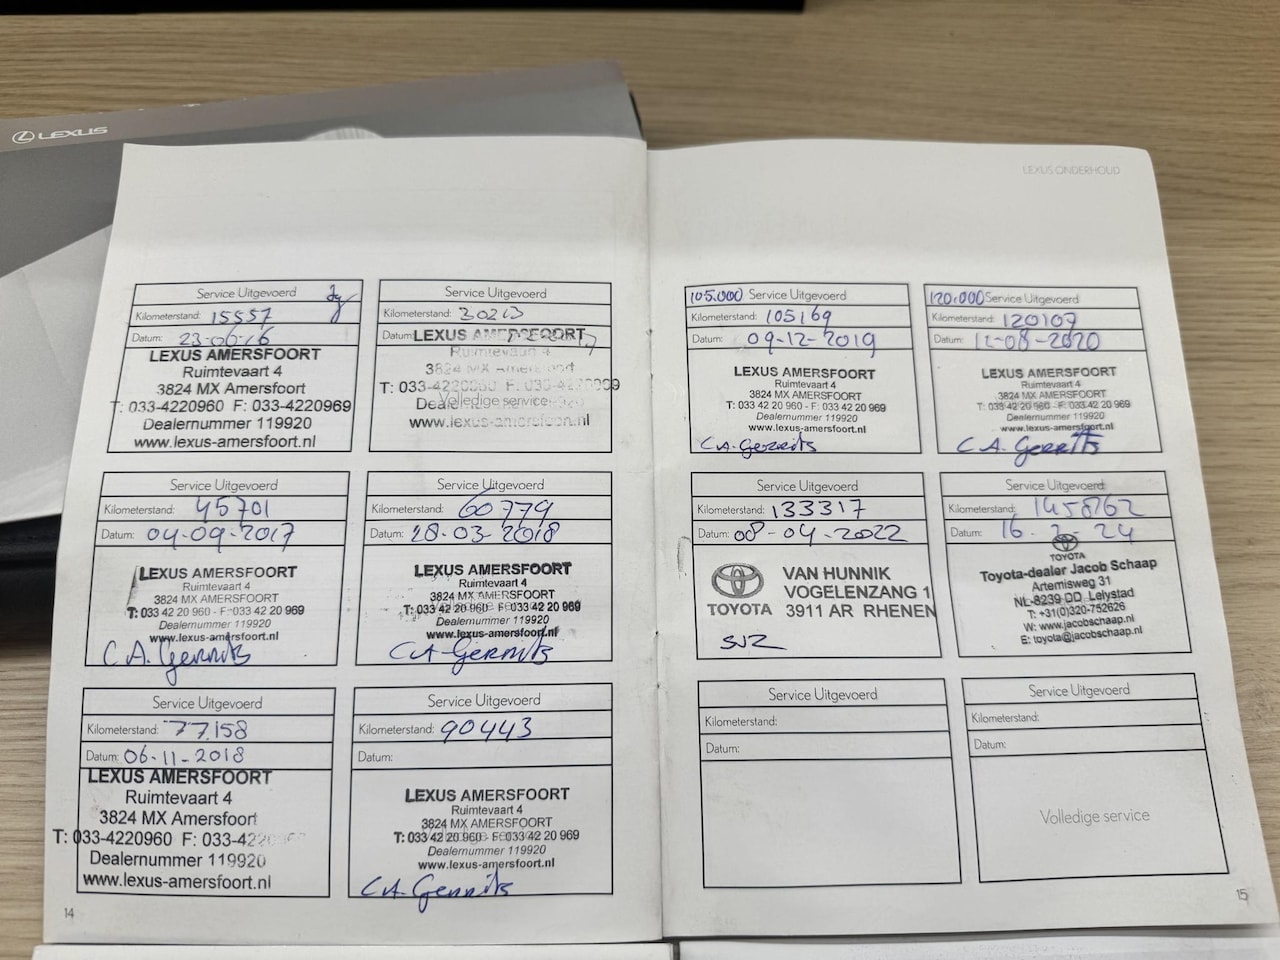 LEXUS
LEXUS ONDERHOUD
Service Uitgevoerd
Kilometerstand: 15557
Datum: 23-06-16
LEXUS AMERSFOORT
Ruimtevaart 4
3824 MX Amersfoort
T: 033-4220960 F: 033-4220969
Dealernummer 119920
www.lexus-amersfoort.nl
Service Uitgevoerd
Kilometerstand: 30213
Datum:
LEXUS AMERSFOORT
Ruimtevaart 4
3824 MX Amersfoort
T: 033-4220960 F: 033-4220969
Volledige service
www.lexus-amersfoort.nl
Service Uitgevoerd
Kilometerstand: 45701
Datum: 04-09-2017
LEXUS AMERSFOORT
Ruimtevaart 4
3824 MX AMERSFOORT
T: 033 42 20 960 - F: 033 42 20 969
Dealernummer 119920
www.lexus-amersfoort.nl
C.A. Gerrits
Service Uitgevoerd
Kilometerstand: 60779
Datum: 28-03-2018
LEXUS AMERSFOORT
Ruimtevaart 4
3824 MX AMERSFOORT
T: 033 42 20 960 - F: 033 42 20 969
Dealernummer 119920
www.lexus-amersfoort.nl
C.A. Gerrits
Service Uitgevoerd
Kilometerstand: 77.158
Datum: 06-11-2018
LEXUS AMERSFOORT
Ruimtevaart 4
3824 MX Amersfoort
T: 033-4220960 F: 033-42
Dealernummer 119920
www.lexus-amersfoort.nl
Service Uitgevoerd
Kilometerstand: 90443
Datum:
LEXUS AMERSFOORT
Ruimtevaart 4
3824 MX AMERSFOORT
T: 033 42 20 960 - F: 033 42 20 969
Dealernummer 119920
www.lexus-amersfoort.nl
C.A. Gerrits
14
105.000 Service Uitgevoerd
Kilometerstand: 105169
Datum: 09-12-2019
LEXUS AMERSFOORT
Ruimtevaart 4
3824 MX AMERSFOORT
T: 033 42 20 960 - F: 033 42 20 969
Dealernummer 119920
www.lexus-amersfoort.nl
C.A. Gerrits
120.000 Service Uitgevoerd
Kilometerstand: 120107
Datum: 12-08-2020
LEXUS AMERSFOORT
Ruimtevaart 4
3824 MX AMERSFOORT
T: 033 42 20 960 - F: 033 42 20 969
Dealernummer 119920
www.lexus-amersfoort.nl
C.A. Gerrits
Service Uitgevoerd
Kilometerstand: 133317
Datum: 08-04-2022
TOYOTA
VAN HUNNIK
VOGELENZANG 1
3911 AR RHENEN
Service Uitgevoerd
Kilometerstand:
Datum: 16-2-24
TOYOTA
Toyota-dealer Jacob Schaap
Artemisweg 31
NL-8239 DD Lelystad
T: +31(0)320-752626
W: www.jacobschaap.nl
E: toyota@jacobschaap.nl
Service Uitgevoerd
Kilometerstand:
Datum:
Service Uitgevoerd
Kilometerstand:
Datum:
Volledige service
15